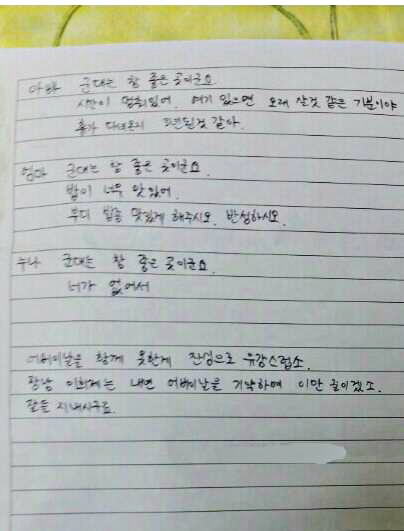 아빠 군대는 참 좋은 곳이군요
시간이 멈춰있어. 여기 있으면 오래 살것 같은 기분이야
휴가 다녀온지 5년된것 같아.
엄마 군대는 참 좋은 곳이군요.
밥이 너무 맛있어.
부디 밥을 맛있게 해주시오. 반성하시오.
누나 군대는 참 좋은 곳이군요.
너가 없어서
어버이날을 함께 못한게 진심으로 유감스럽소.
장남 이희제는 내년 어버이날을 기약하며 이만 줄이겠소.
잘들 지내시구료.